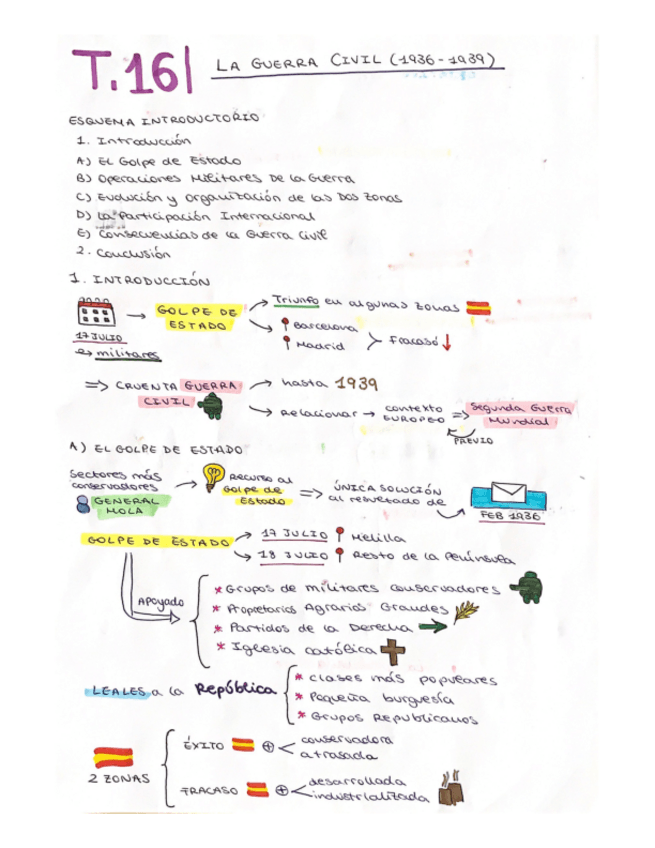 T.16|
LA GUERRA CIVIL (1936-1939)
ESQUEMA INTRODUCTORIO
1. Introducción
A) EL Golpe de Estado
B) Operaciones Militares De la Guerra
C) Evolución y Organización de las Dos Zonas
D) La Participación Internacional
E) Consecuencias de la Guerra Civil
2. Conclusión
1. INTRODUCCIÓN
17 JULIO
militares
GOLPE DE
ESTADO
Triunfo en algunas zonas
Barcelona
Madrid
Fracasó
CRUENTA GUERRA
CIVIL
hasta 1939
Relacionar → contexto
EUROPEO
Segunda Guerra
Mundial
PREVIO
A) EL GOLPE DE ESTADO
Sectores más
conservadores
GENERAL
MOLA
Recurso al
Golpe de
Estado
ÚNICA SOLUCIÓN
al resultado de
FEB 1936
GOLPE DE ESTADO
17 JULIO Melilla
18 JULIO Resto de la Península
Apoyado
* Grupos de militares conservadores
* Propietarios Agrarios Grandes
* Partidos de la Derecha
* Iglesia católica
LEALES a la República
* clases más populares
* Pequeña burguesía
* Grupos Republicanos
2 ZONAS
ÉXITO ⊕ < conservadora
atrasada
FRACASO ⊕ < desarrollada
industrializada